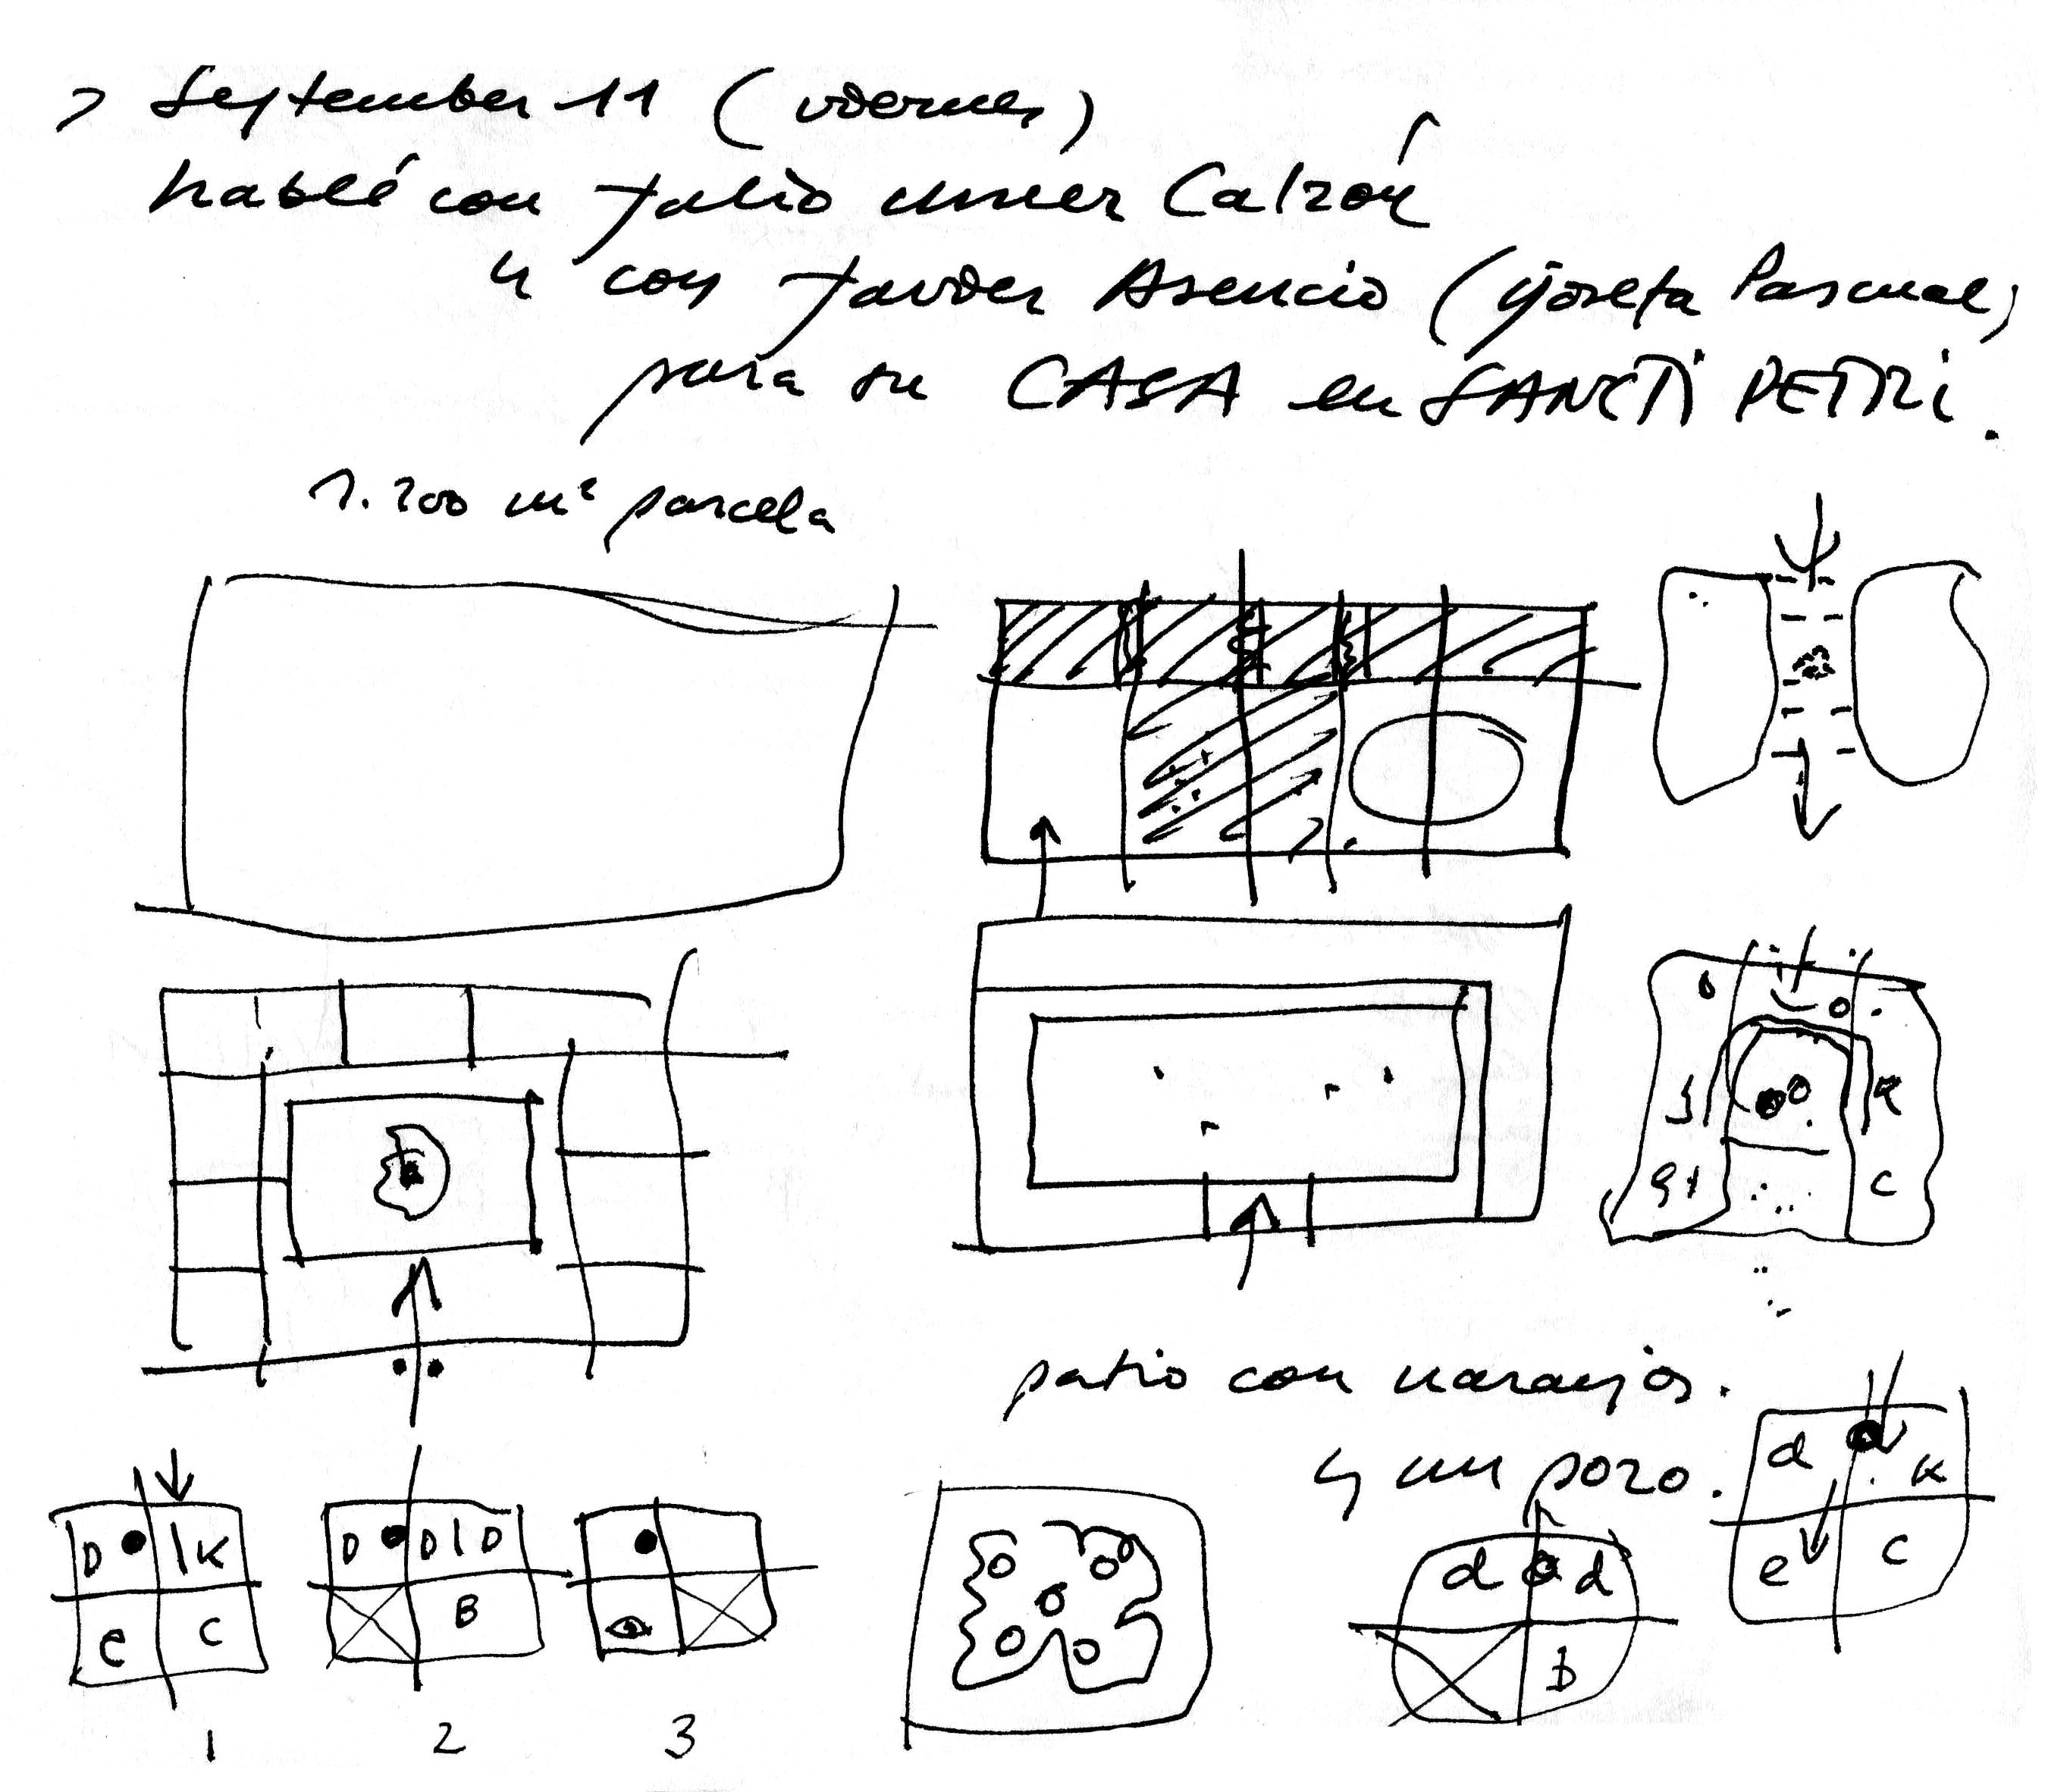 > September 11 (viernes)
hablé con Julio Calzón
y con Javier Asencio (y Josefa Pascual)
para su CASA en SANCTI PETRI.
1.200 m² parcela
J K
C
patio con naranjos.
y un pozo.
d K
e C
D K
e C
1
D D D
B
2
3
d d
b